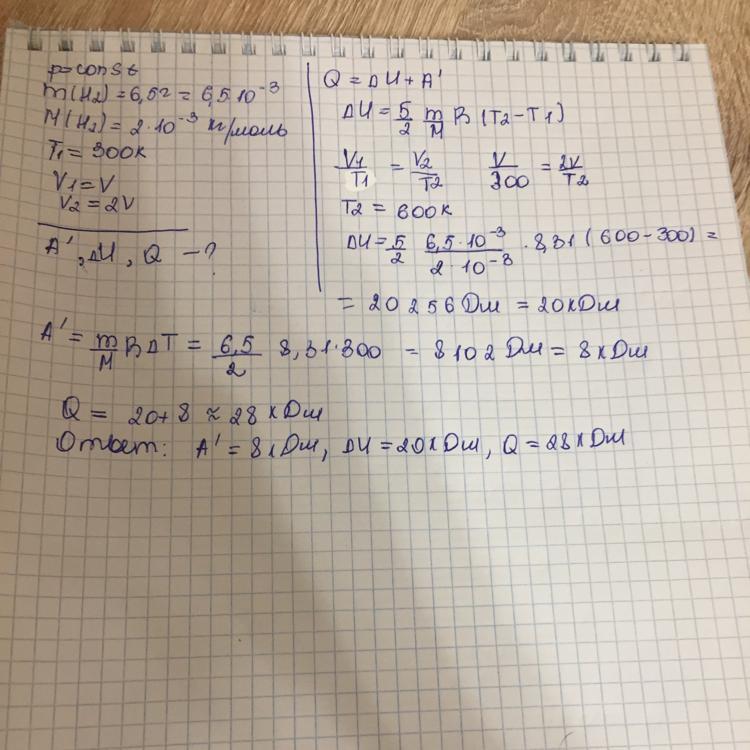 p=const
m(H₂) = 6,5г = 6,5·10⁻³
M(H₂) = 2·10⁻³ кг/моль
T₁ = 300К
V₁ = V
V₂ = 2V
A', ΔU, Q - ?
Q = ΔU + A'
ΔU = 5/2 m/M R (T₂ - T₁)
V₁/T₁ = V₂/T₂ V/300 = 2V/T₂
T₂ = 600К
ΔU = 5/2 6,5·10⁻³/2·10⁻³ · 8,31 (600 - 300) =
= 20256 Дж = 20 кДж
A' = m/M R ΔT = 6,5/2 8,31·300 = 8102 Дж = 8 кДж
Q = 20+8 ≈ 28 кДж
Ответ: A' = 8 кДж, ΔU = 20 кДж, Q = 28 кДж